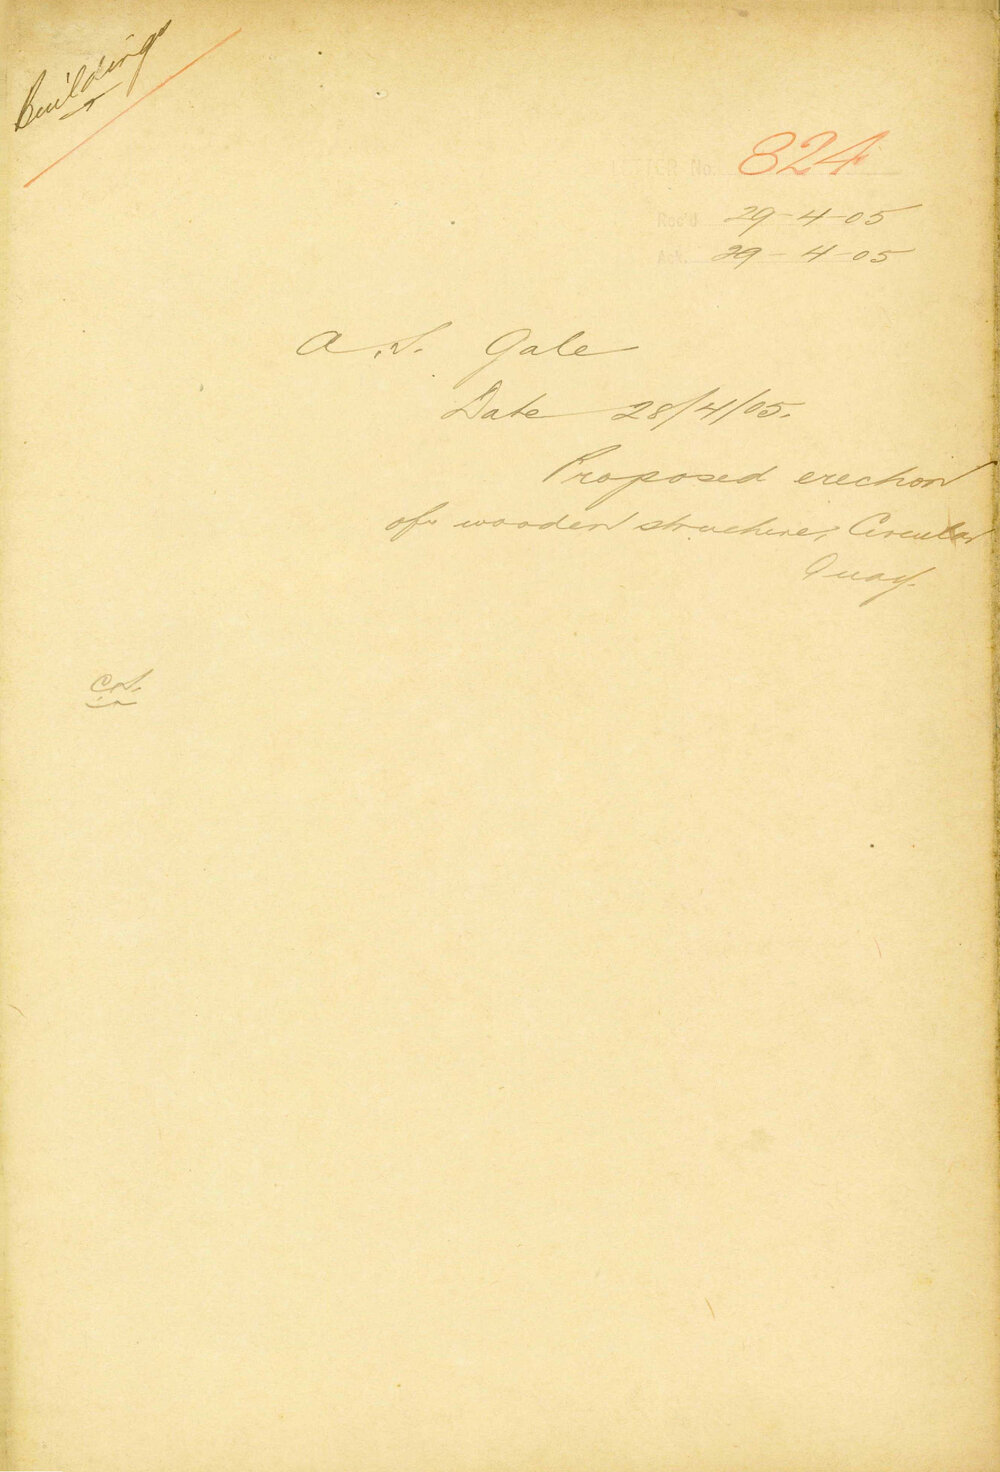 Buildings
LETTER No. 824
Rec'd 29-4-05
Ack. 29-4-05
A. S. Gale
Date 28/4/05.
Proposed erection
of wooden structure, Circular
Quay.